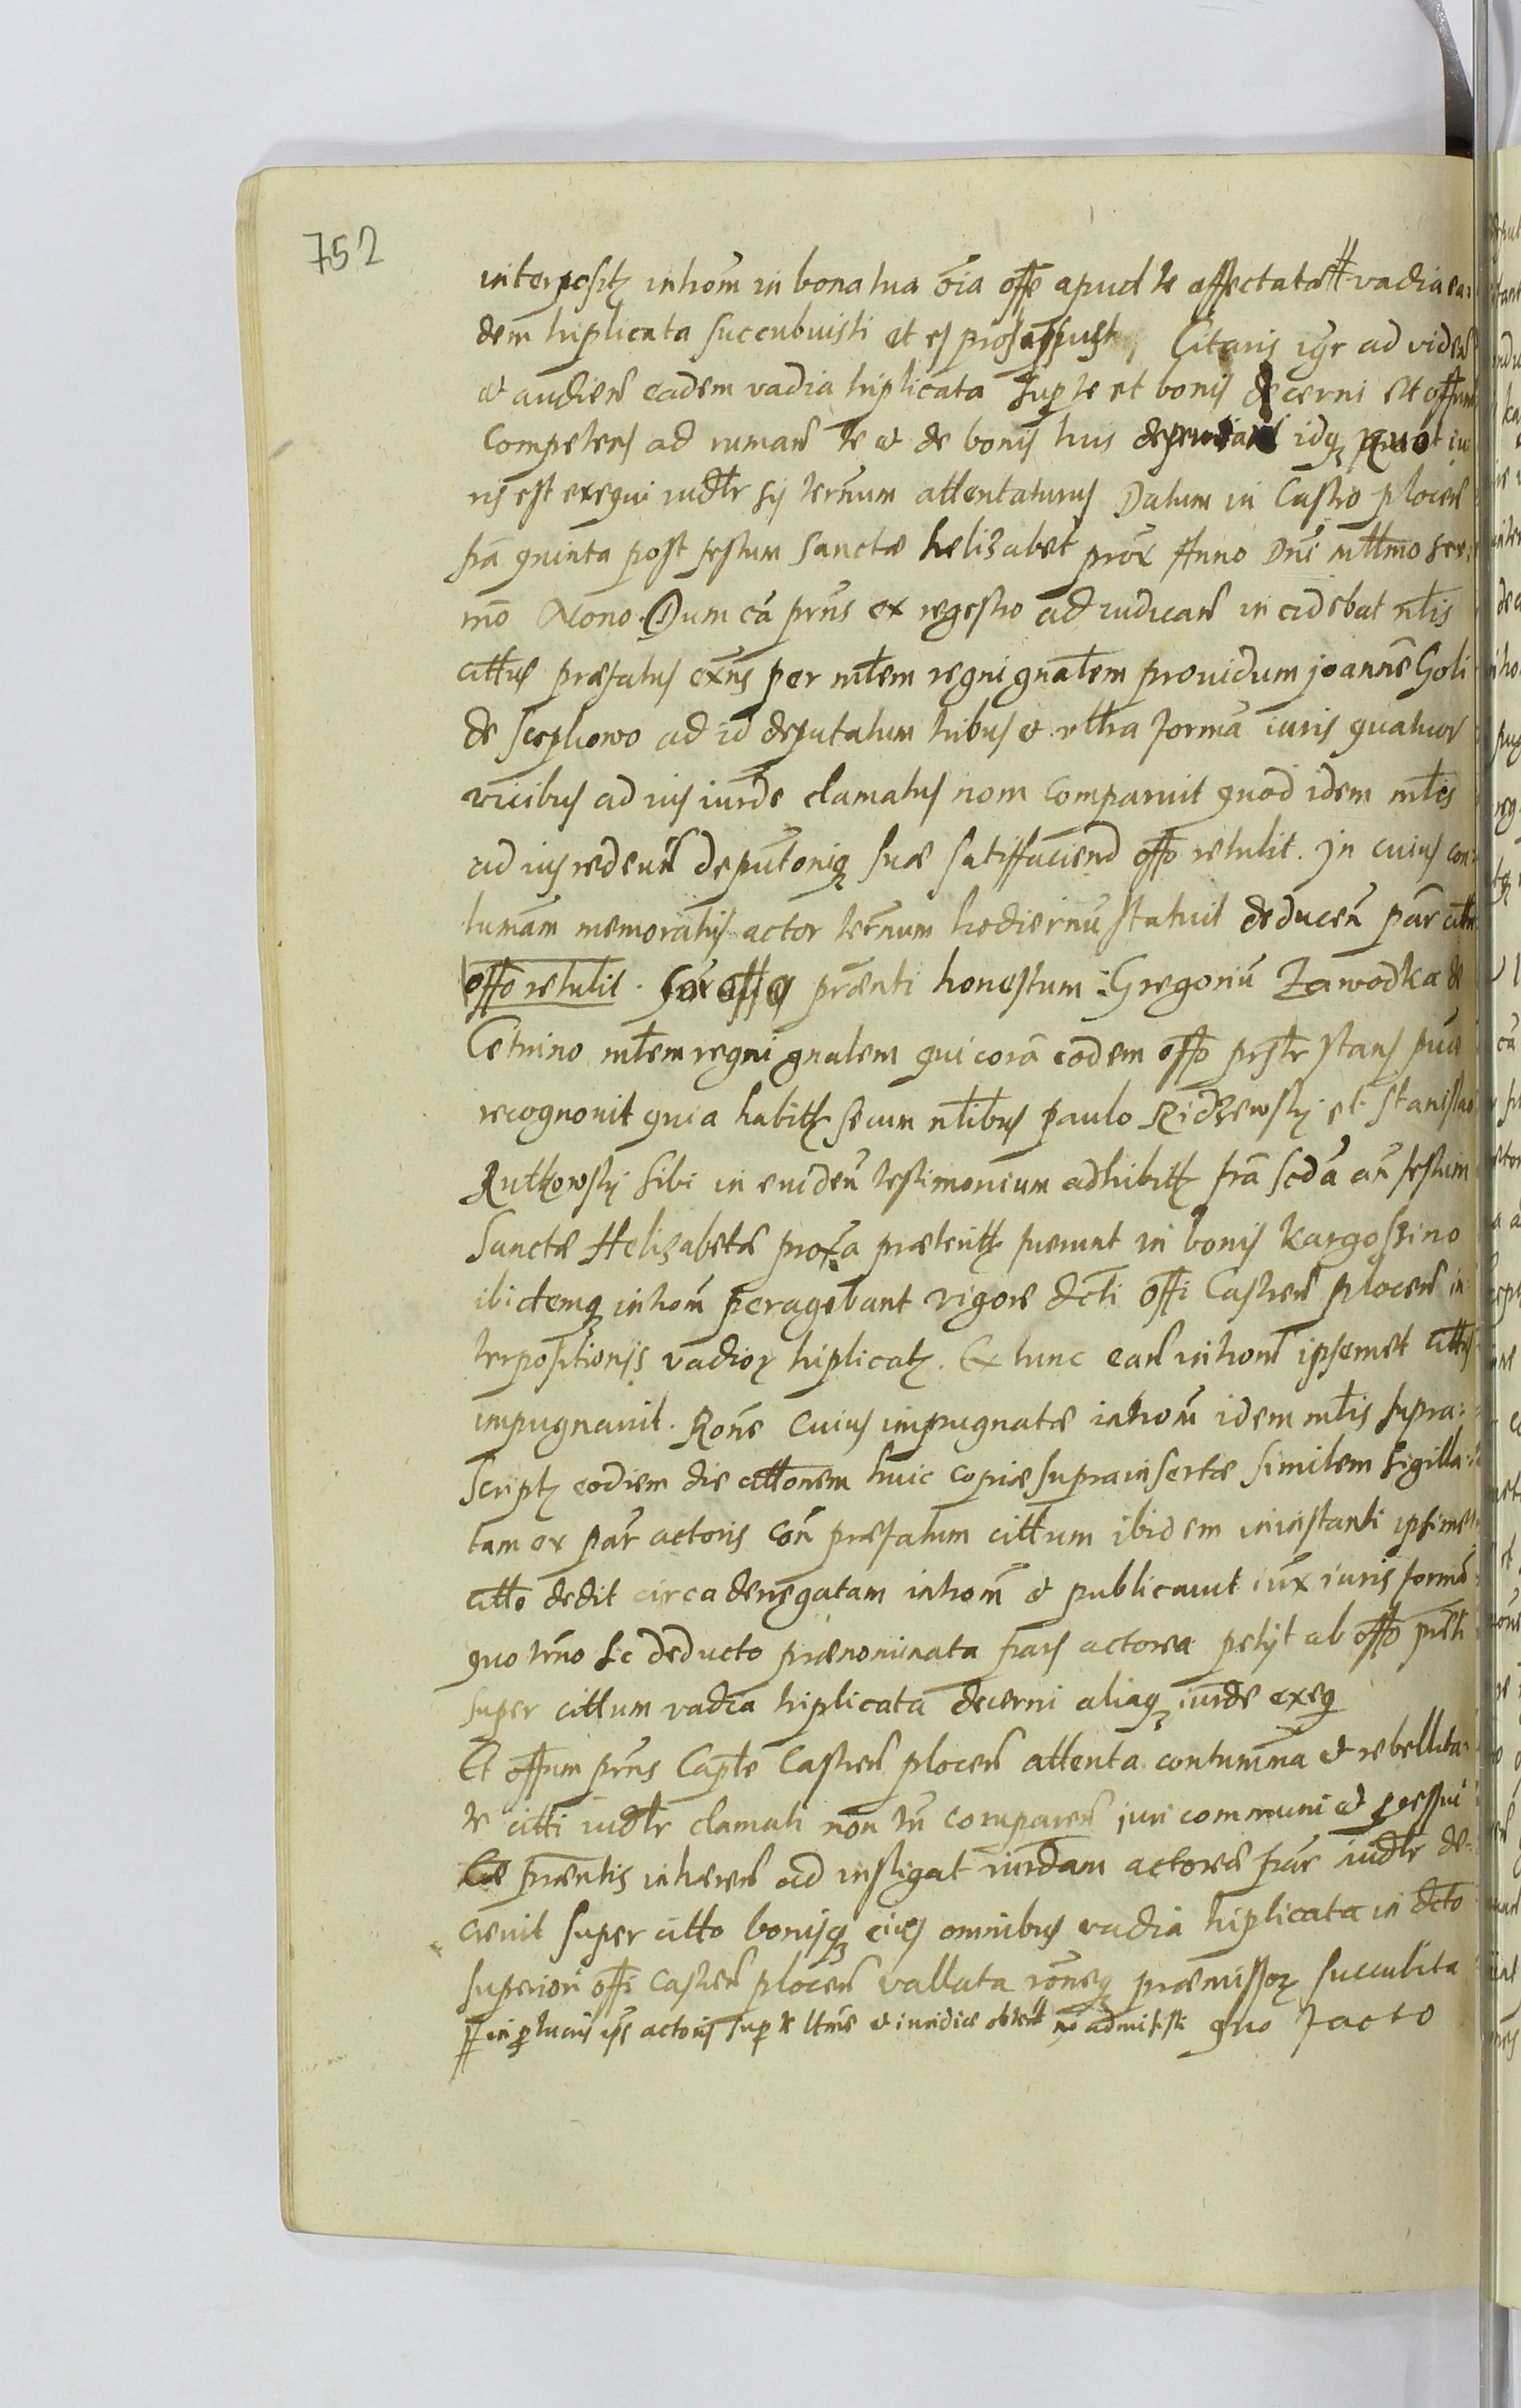 752
interposit intrōm in bona tua oīa offo apud te affectata # vadia ea:
dem triplicata succubuisti et es Citaris igr ad viden
et audien eadem vadia triplicata supr te et bonis decerni et offium
competens ad ruman te et de bonis tuis idq iu
ris est exequi iudtr sy ternum attentaturus Datum in Castro plocen
fra quinta post festum sanctæ helizabet prox Anno Dni milltmo sex:
mo Nono. Dum ca prns ex regestro ad iudican incidebat ntlis
cittus præfatus exns per mtlem regni gnalem prouidum joannē Goli
de scephowo ad id deputatum tribus et vltra formā iuris quatuor
vicibus ad ius iurde clamatus non comparuit quod idem mtles
ad ius redeun deputoniq suæ satisfaciend offo retulit. In cuius con:
tumām memoratus actor ternum hodiernū statuit deducen par citt
offo retulit. prænti honestum Gregoriū Zawodka de
Cetnino mtlem regni gnalem qui corā eodem offo prstr stans pua
recognouit quia habitt secum ntlibus paulo Nidzewsky et Stanislao
Rutkowsky sibi in euiden testimonium adhibitt fra scda an festum
Sanctæ Helizabetæ proxa præteritt fuerunt in bonis kargoszino
ibidemq intrōm peragebant vigore dcti offi Castren plocen in
terpositionis vadior triplicat. Extunc eam intrōm ipsemet cittus
impugnauit. Rōne cuius impugnatæ introm idem mtlis supra:
script eodiem die cittonem huic copiæ suprainsertæ similem sigilla:
tam ex par actoris con præfatum cittum ibidem in instanti ipsimet
citto dedit circa denegatam introm et publicauit iux iuris formā
quo trno sc deducto prænominata pars actorea petyt ab offo prnti
super cittum vadia triplicata decerni aliaq iurde exeq
Et offium prns Capte Castren plocen attenta contumma et rebellita:
te citti iudtr clamati non tn comparen iuri communi et pcessui
præntis inhæren ad instigat iurdam actoreæ par iudtr de:
creuit super citto bonisq eius omnibus vadia triplicata in dcto
superiori offi castren plocen vallata rōneq præmissor succubita
# in p lucris ips actoris sup te ltme et iuridice obtent nō admisisti quo facto